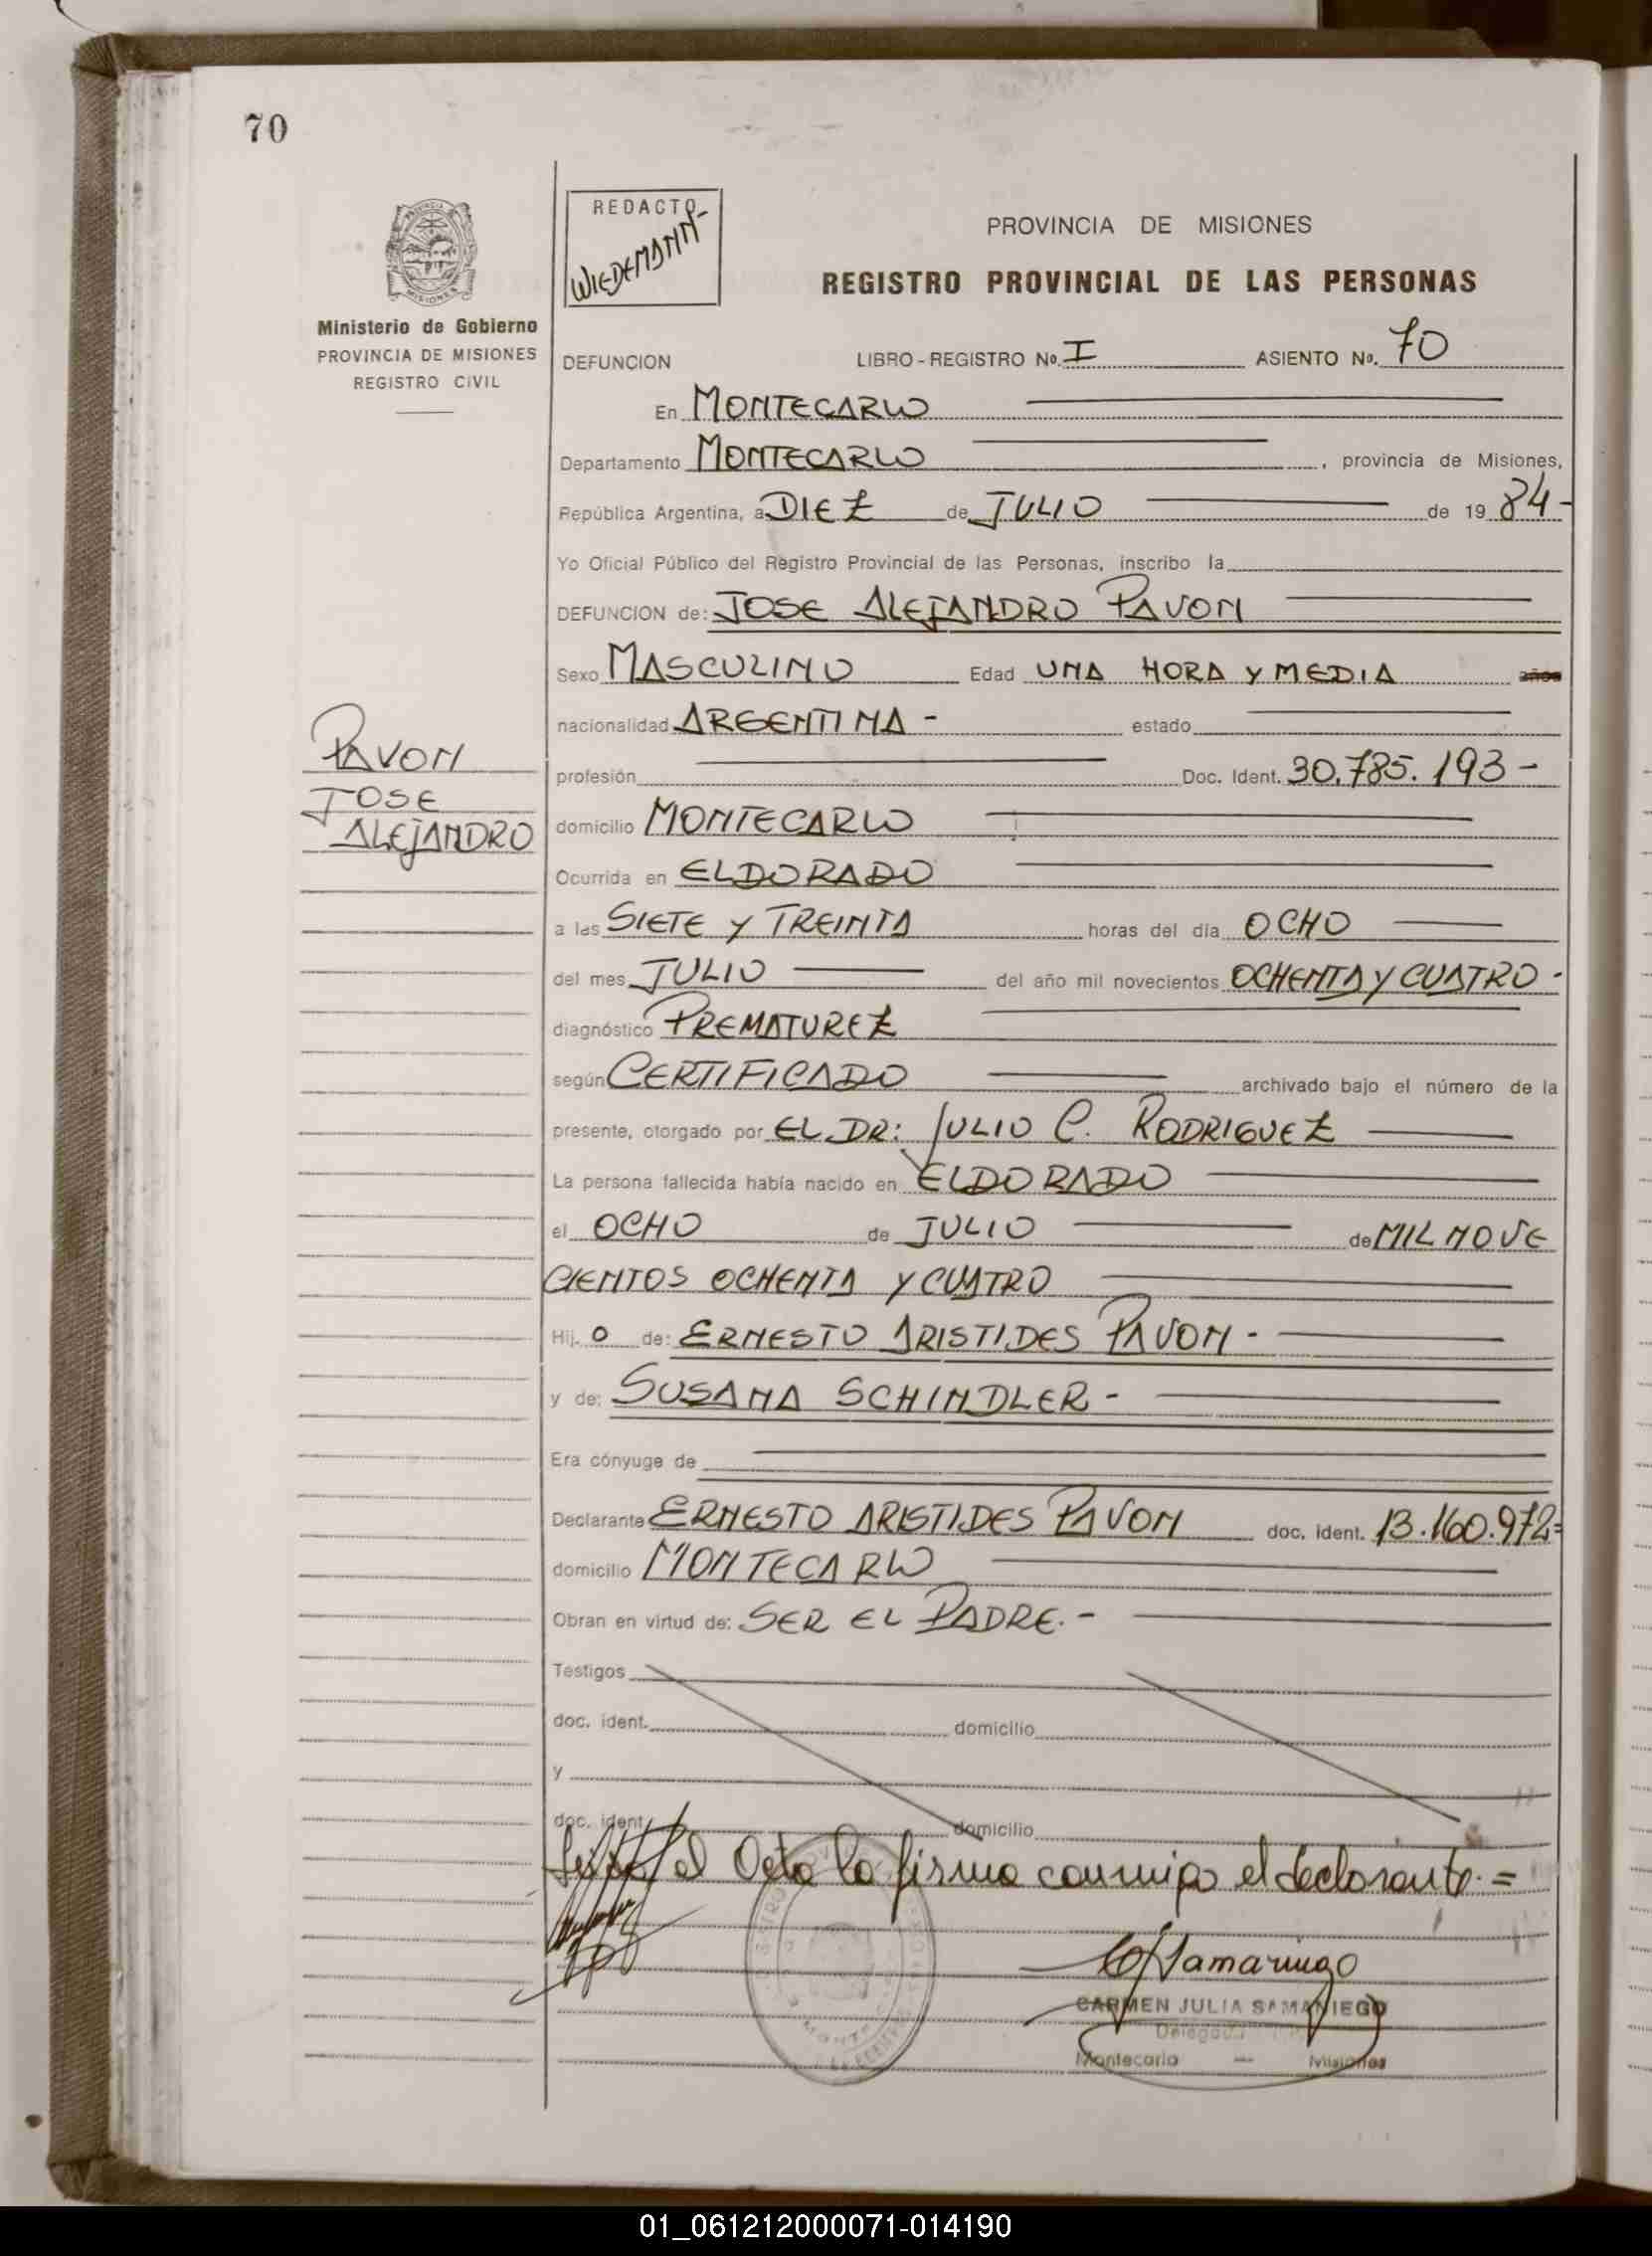 70
PROVINCIA
MISIONES
Ministerio de Gobierno
PROVINCIA DE MISIONES
REGISTRO CIVIL
REDACTO
WIEDEMANN-
PROVINCIA DE MISIONES
REGISTRO PROVINCIAL DE LAS PERSONAS
DEFUNCION LIBRO-REGISTRO No. I ASIENTO No. 70
En MONTECARLO
Departamento MONTECARLO, provincia de Misiones,
República Argentina, a DIEZ de JULIO de 19 84-
Yo Oficial Público del Registro Provincial de las Personas, inscribo la
DEFUNCION de: JOSE ALEJANDRO PAVON
Sexo MASCULINO Edad UNA HORA Y MEDIA años
nacionalidad ARGENTINA - estado
PAVON
JOSE
ALEJANDRO
profesión Doc. Ident. 30.785.193-
domicilio MONTECARLO
Ocurrida en ELDORADO
a las SIETE Y TREINTA horas del día OCHO
del mes JULIO del año mil novecientos OCHENTA Y CUATRO-
diagnóstico PREMATUREZ
según CERTIFICADO archivado bajo el número de la
presente, otorgado por EL DR: JULIO C. RODRIGUEZ
La persona fallecida había nacido en ELDORADO
el OCHO de JULIO de MIL NOVE
CIENTOS OCHENTA Y CUATRO
Hij. o de: ERNESTO ARISTIDES PAVON-
y de: SUSANA SCHINDLER-
Era cónyuge de
Declarante ERNESTO ARISTIDES PAVON doc. ident. 13.160.972=
domicilio MONTECARLO
Obran en virtud de: SER EL PADRE.-
Testigos
doc. ident. domicilio
y
doc. ident. domicilio
el Acta la firma conmigo el declarante.=
CJSamaniego
CARMEN JULIA SAMANIEGO
Delegada
Montecarlo — Misiones
01_061212000071-014190